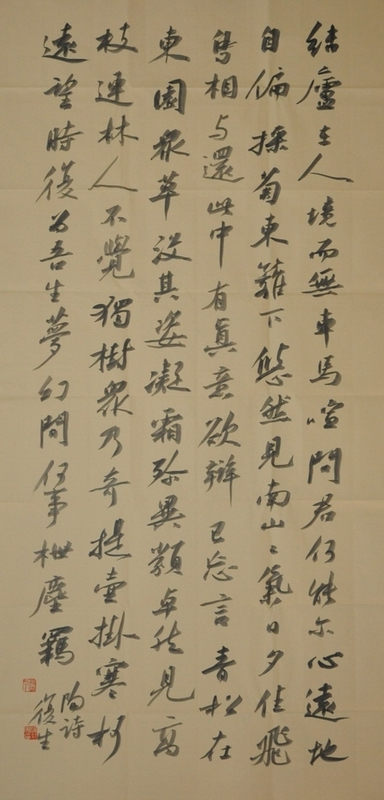 結廬在人境而無車馬喧問君何能尔心遠地
自偏採菊東籬下悠然見南山〻氣日夕佳飛
鳥相与還此中有真意欲辯已忘言青松在
東園眾草沒其姿凝霜殄異類卓然見高
枝連林人不覺獨樹眾乃奇提壺掛寒柯
遠望時復為吾生夢幻間何事枻塵羈
陶詩
復生